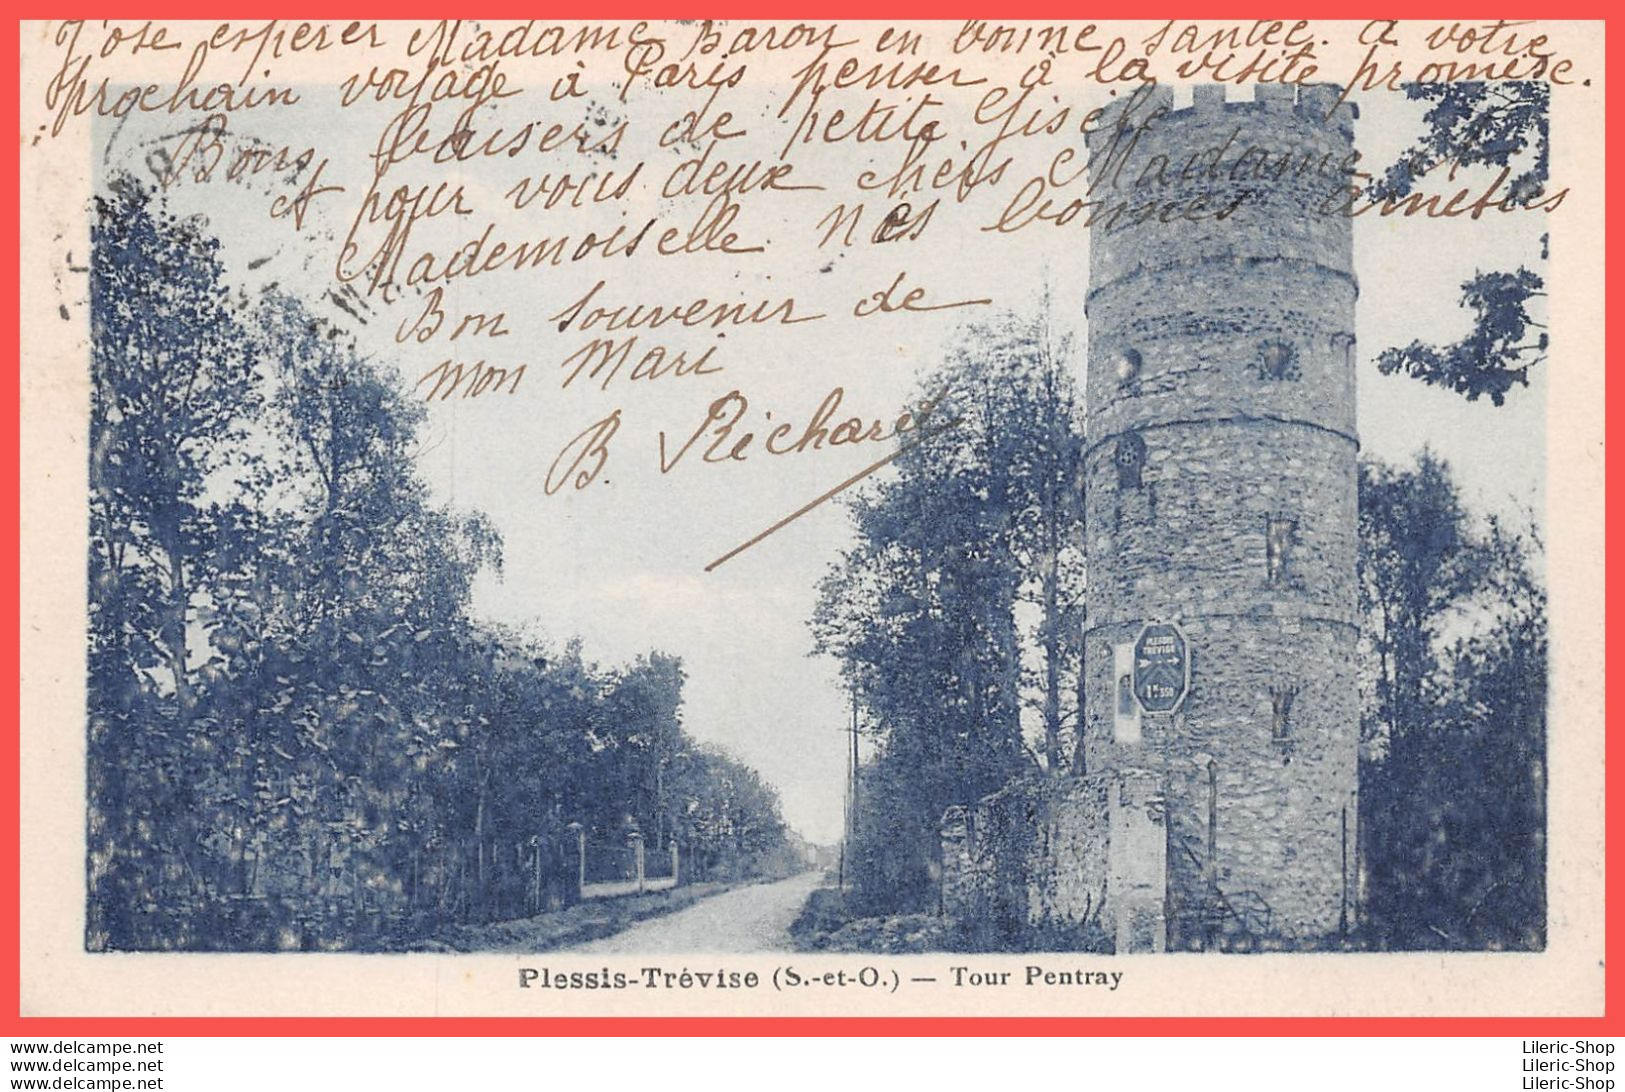 J'ose espérer Madame Baron en bonne santée. à votre
prochain voyage à Paris penser à la visite promise.
Bons baisers de petite Gisèle
et pour vous deux chers Madame et
Mademoiselle nos bonnes amitiés
Bon souvenir de
mon Mari
B. Richard
PLESSIS
TRÉVISE
1 K 350
Plessis-Trévise (S.-et-O.) — Tour Pentray
www.delcampe.net
www.delcampe.net
www.delcampe.net
Lileric-Shop
Lileric-Shop
Lileric-Shop